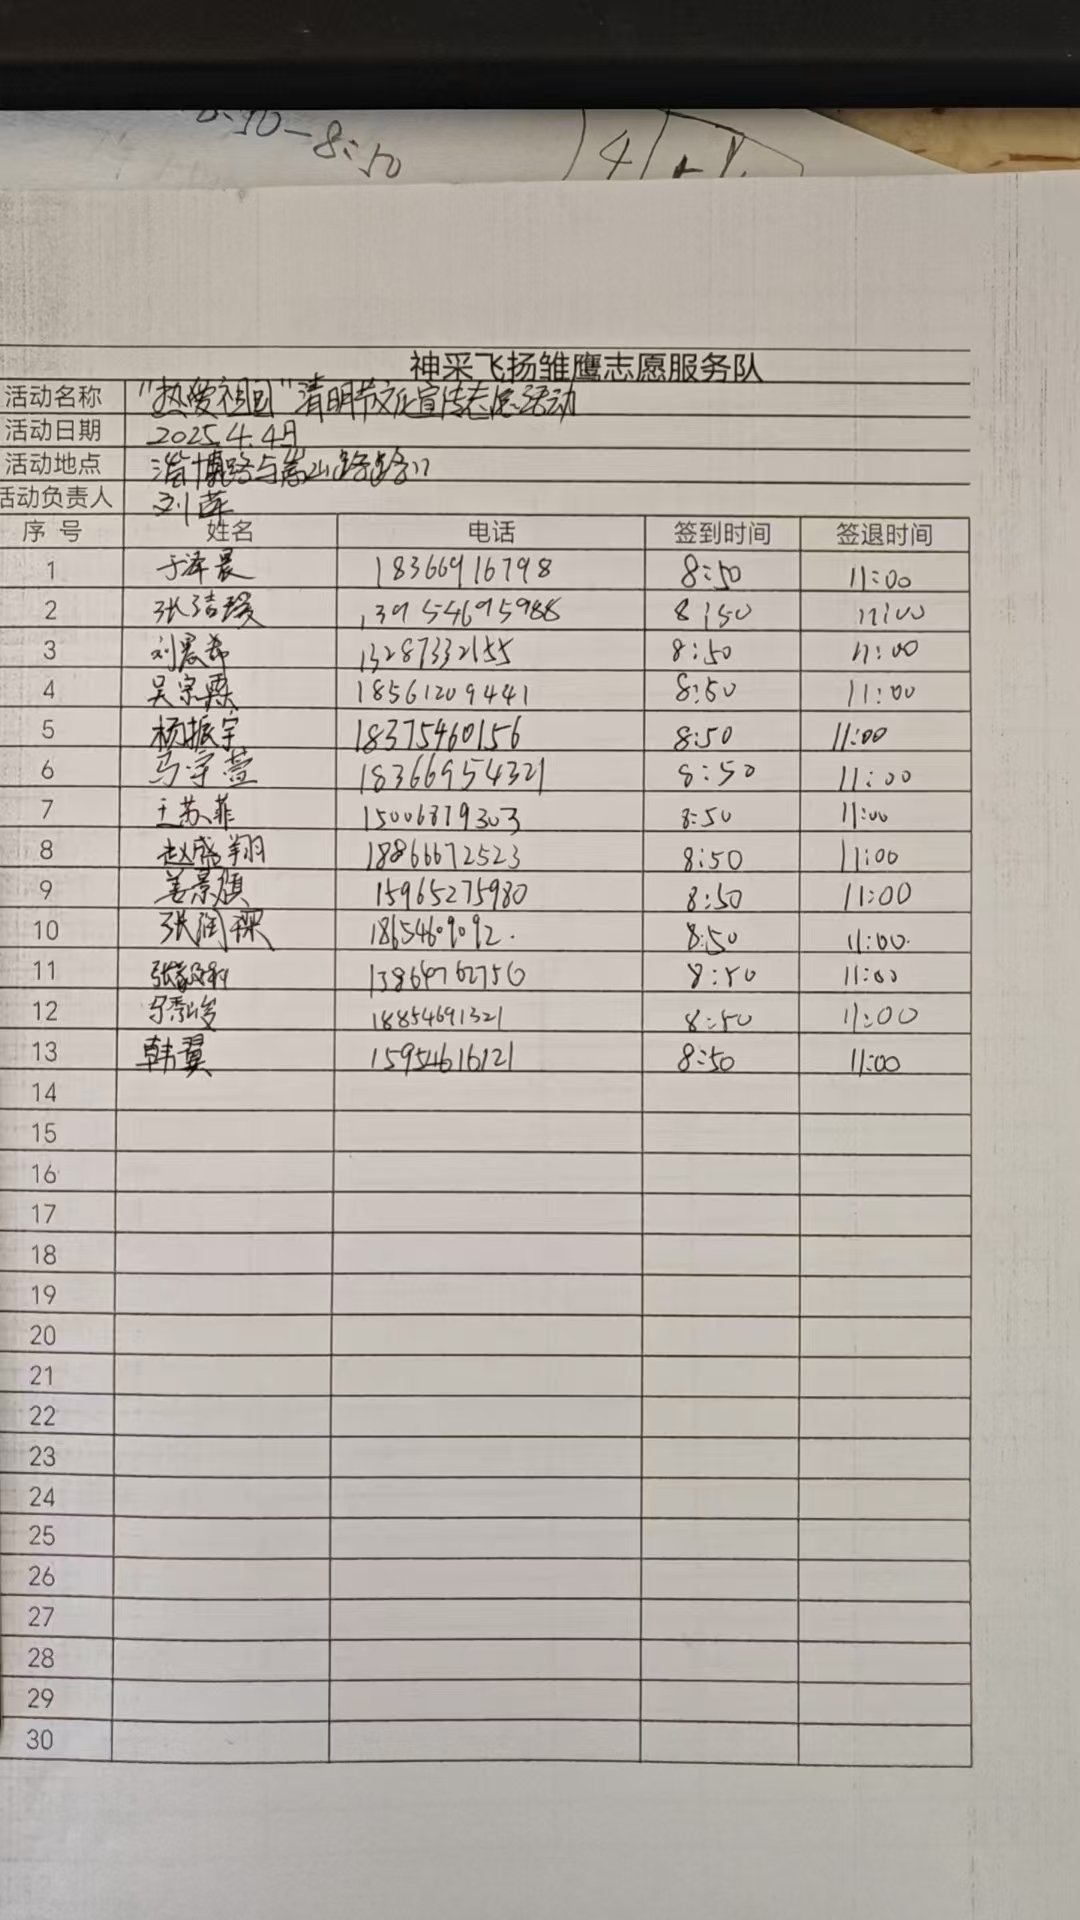 8:50
4
神采飞扬雏鹰志愿服务队
活动名称 "热爱祖国"清明节文化宣传志愿活动
活动日期 2025.4.4日
活动地点 淄博路与嵩山路路口
活动负责人 刘萍
序号 姓名 电话 签到时间 签退时间
1 于泽晨 18366916798 8:50 11:00
2 张洁瑗 13954695988 8:50 11:00
3 刘晨希 13287332155 8:50 11:00
4 吴宗霖 18561209441 8:50 11:00
5 杨振宇 18375460156 8:50 11:00
6 马宇萱 18366954321 8:50 11:00
7 王苏菲 15006879303 8:50 11:00
8 赵盛翔 18866672523 8:50 11:00
9 姜景旗 15965275980 8:50 11:00
10 张润琛 1865469092. 8:50 11:00.
11 13864762750 8:50 11:00
12 18854691321 8:50 11:00
13 韩翼 15954616121 8:50 11:00
14
15
16
17
18
19
20
21
22
23
24
25
26
27
28
29
30